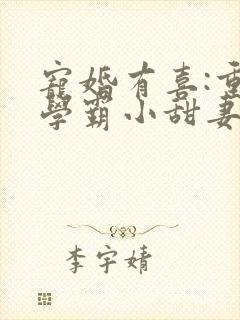 寵婚有喜:重
學霸小甜妻
李宇婧